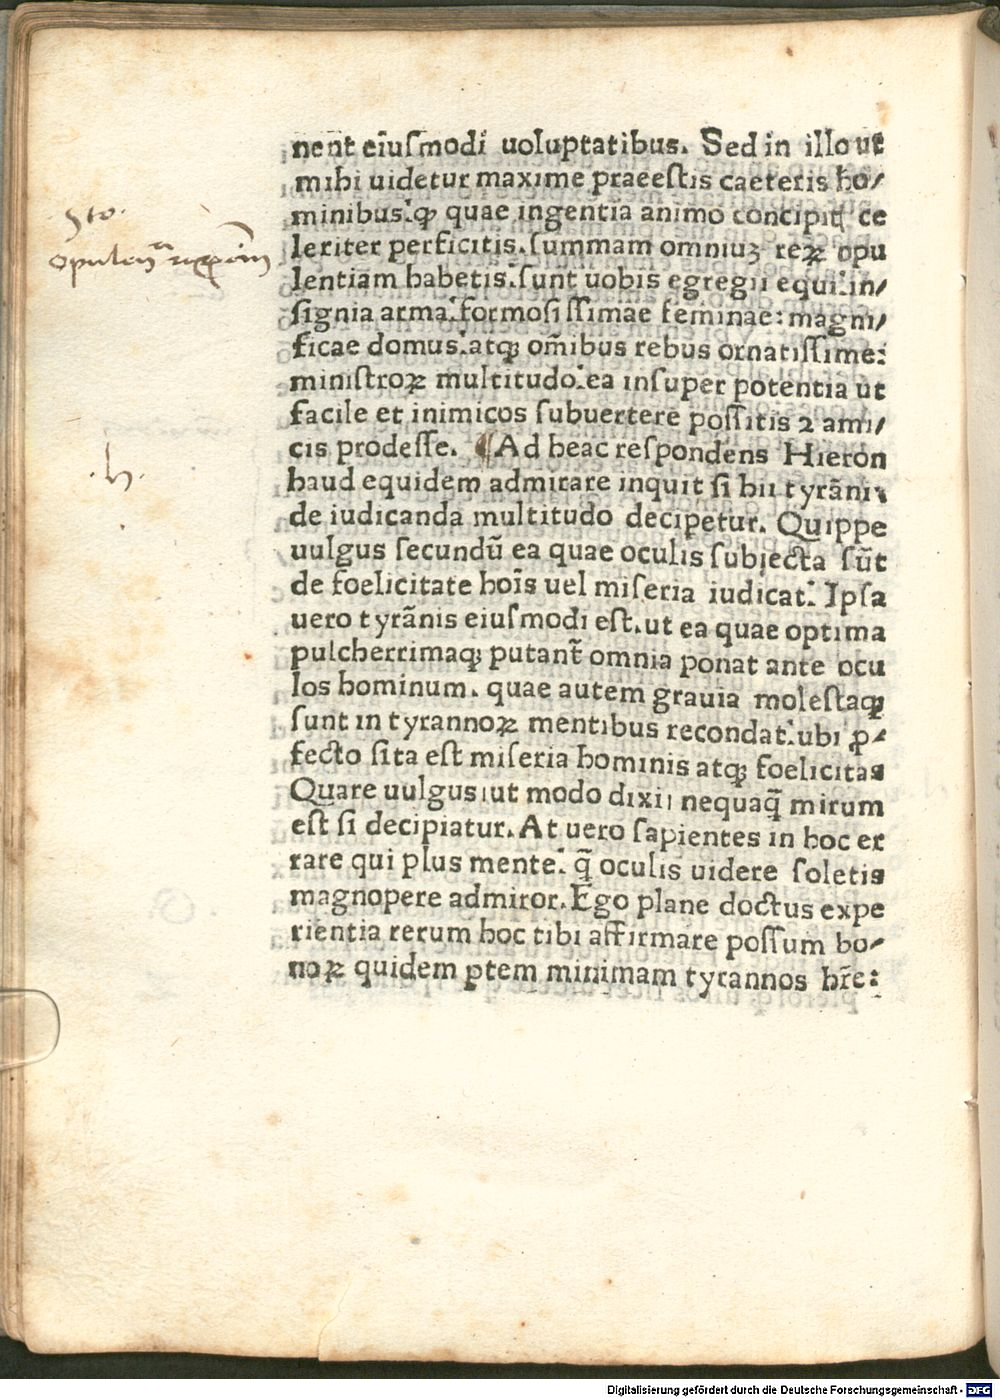 nent̄ eiusmodi uoluptatibus. Sed in illo ut
mihi uidetur maxime praeestis caeteris ho/
minibus. qꝫ quae ingentia animo concipitꝭ ce
leriter perficitis. summam omniuꝫ reꝝ opu
lentiam habetis. sunt uobis egregii equi. in/
signia arma. formosissimae feminae: magni/
ficae domus. atqꝫ om̄ibus rebus ornatissime:
ministroꝝ multitudo. ea insuper potentia ut
facile et inimicos subuertere possitis ⁊ ami/
cis prodesse. ¶ Ad heac respondens Hieron
haud equidem admirare inquit si hii tyrāni
de iudicanda multitudo decipetur. Quippe
uulgus secundū ea quae oculis subiecta sūt
de foelicitate hoīs uel miseria iudicat. Ipsa
uero tyrānis eiusmodi est. ut ea quae optima
pulcherrimaqꝫ putant̄ omnia ponat ante ocu
los hominum. quae autem grauia molestaqꝫ
sunt in tyrannoꝝ mentibus recondat. ubi ꝓ/
fecto sita est miseria hominis atqꝫ foelicitas
Quare uulgus ut modo dixi nequaq̄ mirum
est si decipiatur. At uero sapientes in hoc er
rare qui plus mente. q̄ oculis uidere soletis
magnopere admiror. Ego plane doctus expe
rientia rerum hoc tibi affirmare possum bo/
noꝝ quidem ꝑtem minimam tyrannos hr̄e:
.h.
Digitalisierung gefördert durch die Deutsche Forschungsgemeinschaft - DFG